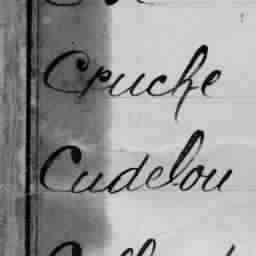 Cruche
Cudelou